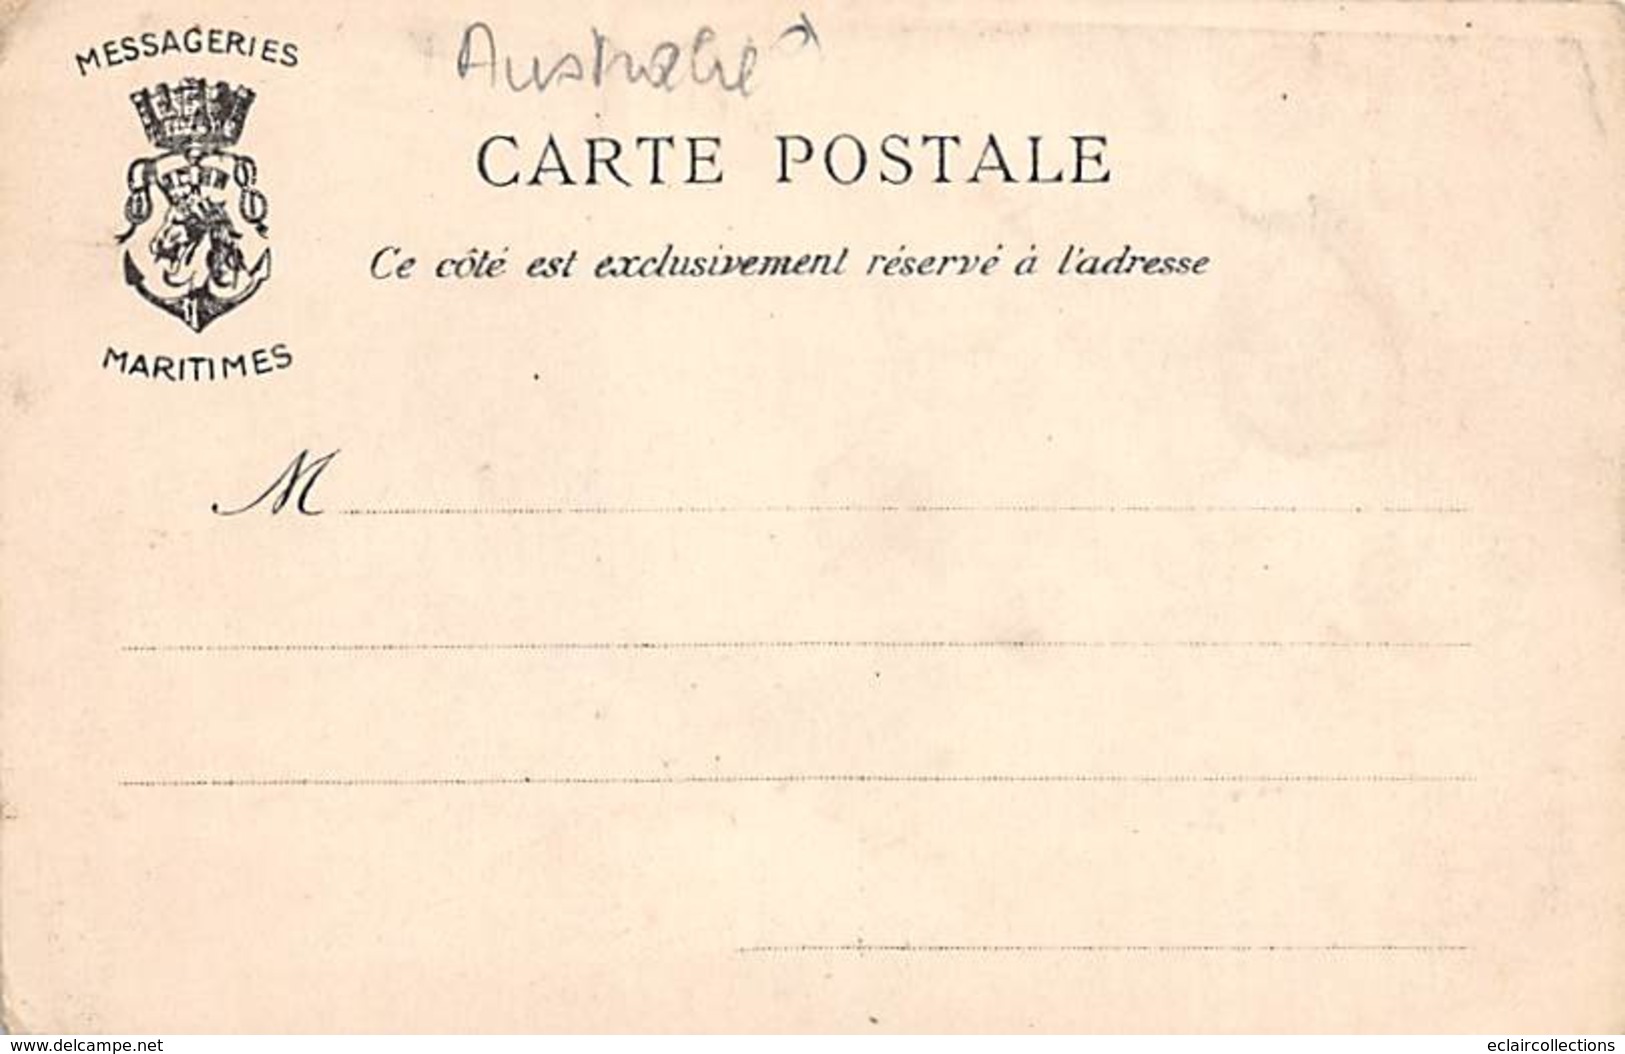 MESSAGERIES
MARITIMES
Australie
CARTE POSTALE
Ce côté est exclusivement réservé à l'adresse
M
www.delcampe.net
eclaircollections